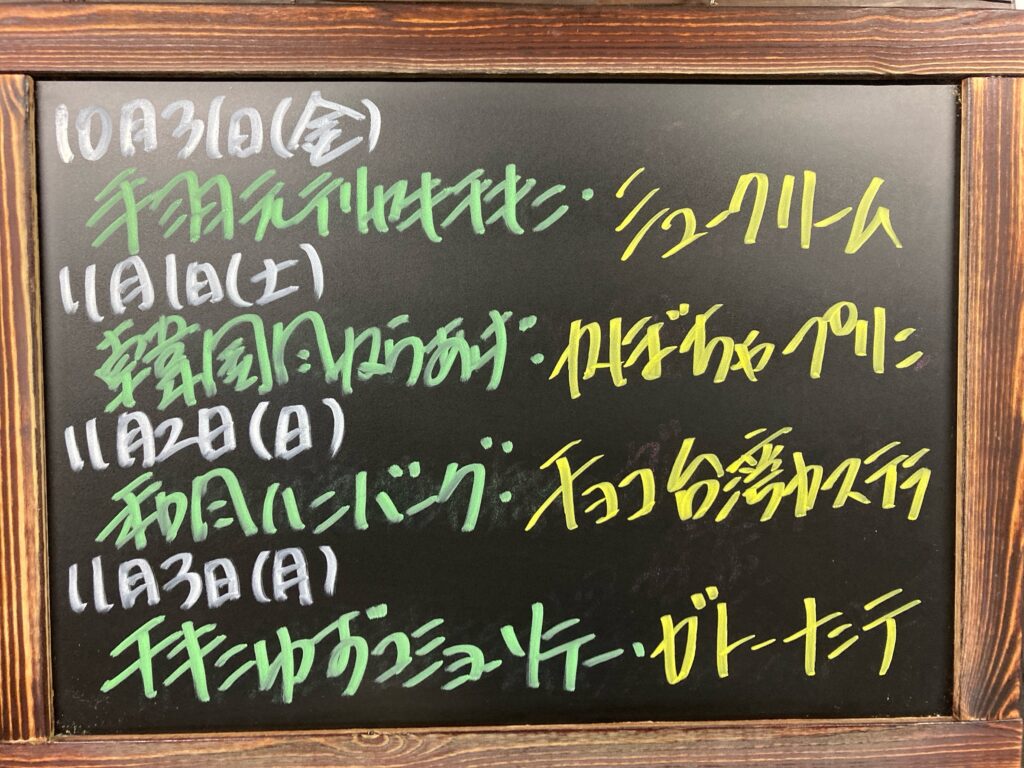 10月31日(金)
手羽元テリヤキチキン・シュークリーム
11月1日(土)
韓国風からあげ・かぼちゃプリン
11月2日(日)
和風ハンバーグ・チョコ台湾カステラ
11月3日(月)
チキンゆずコショーソテー・ガトーナンテ